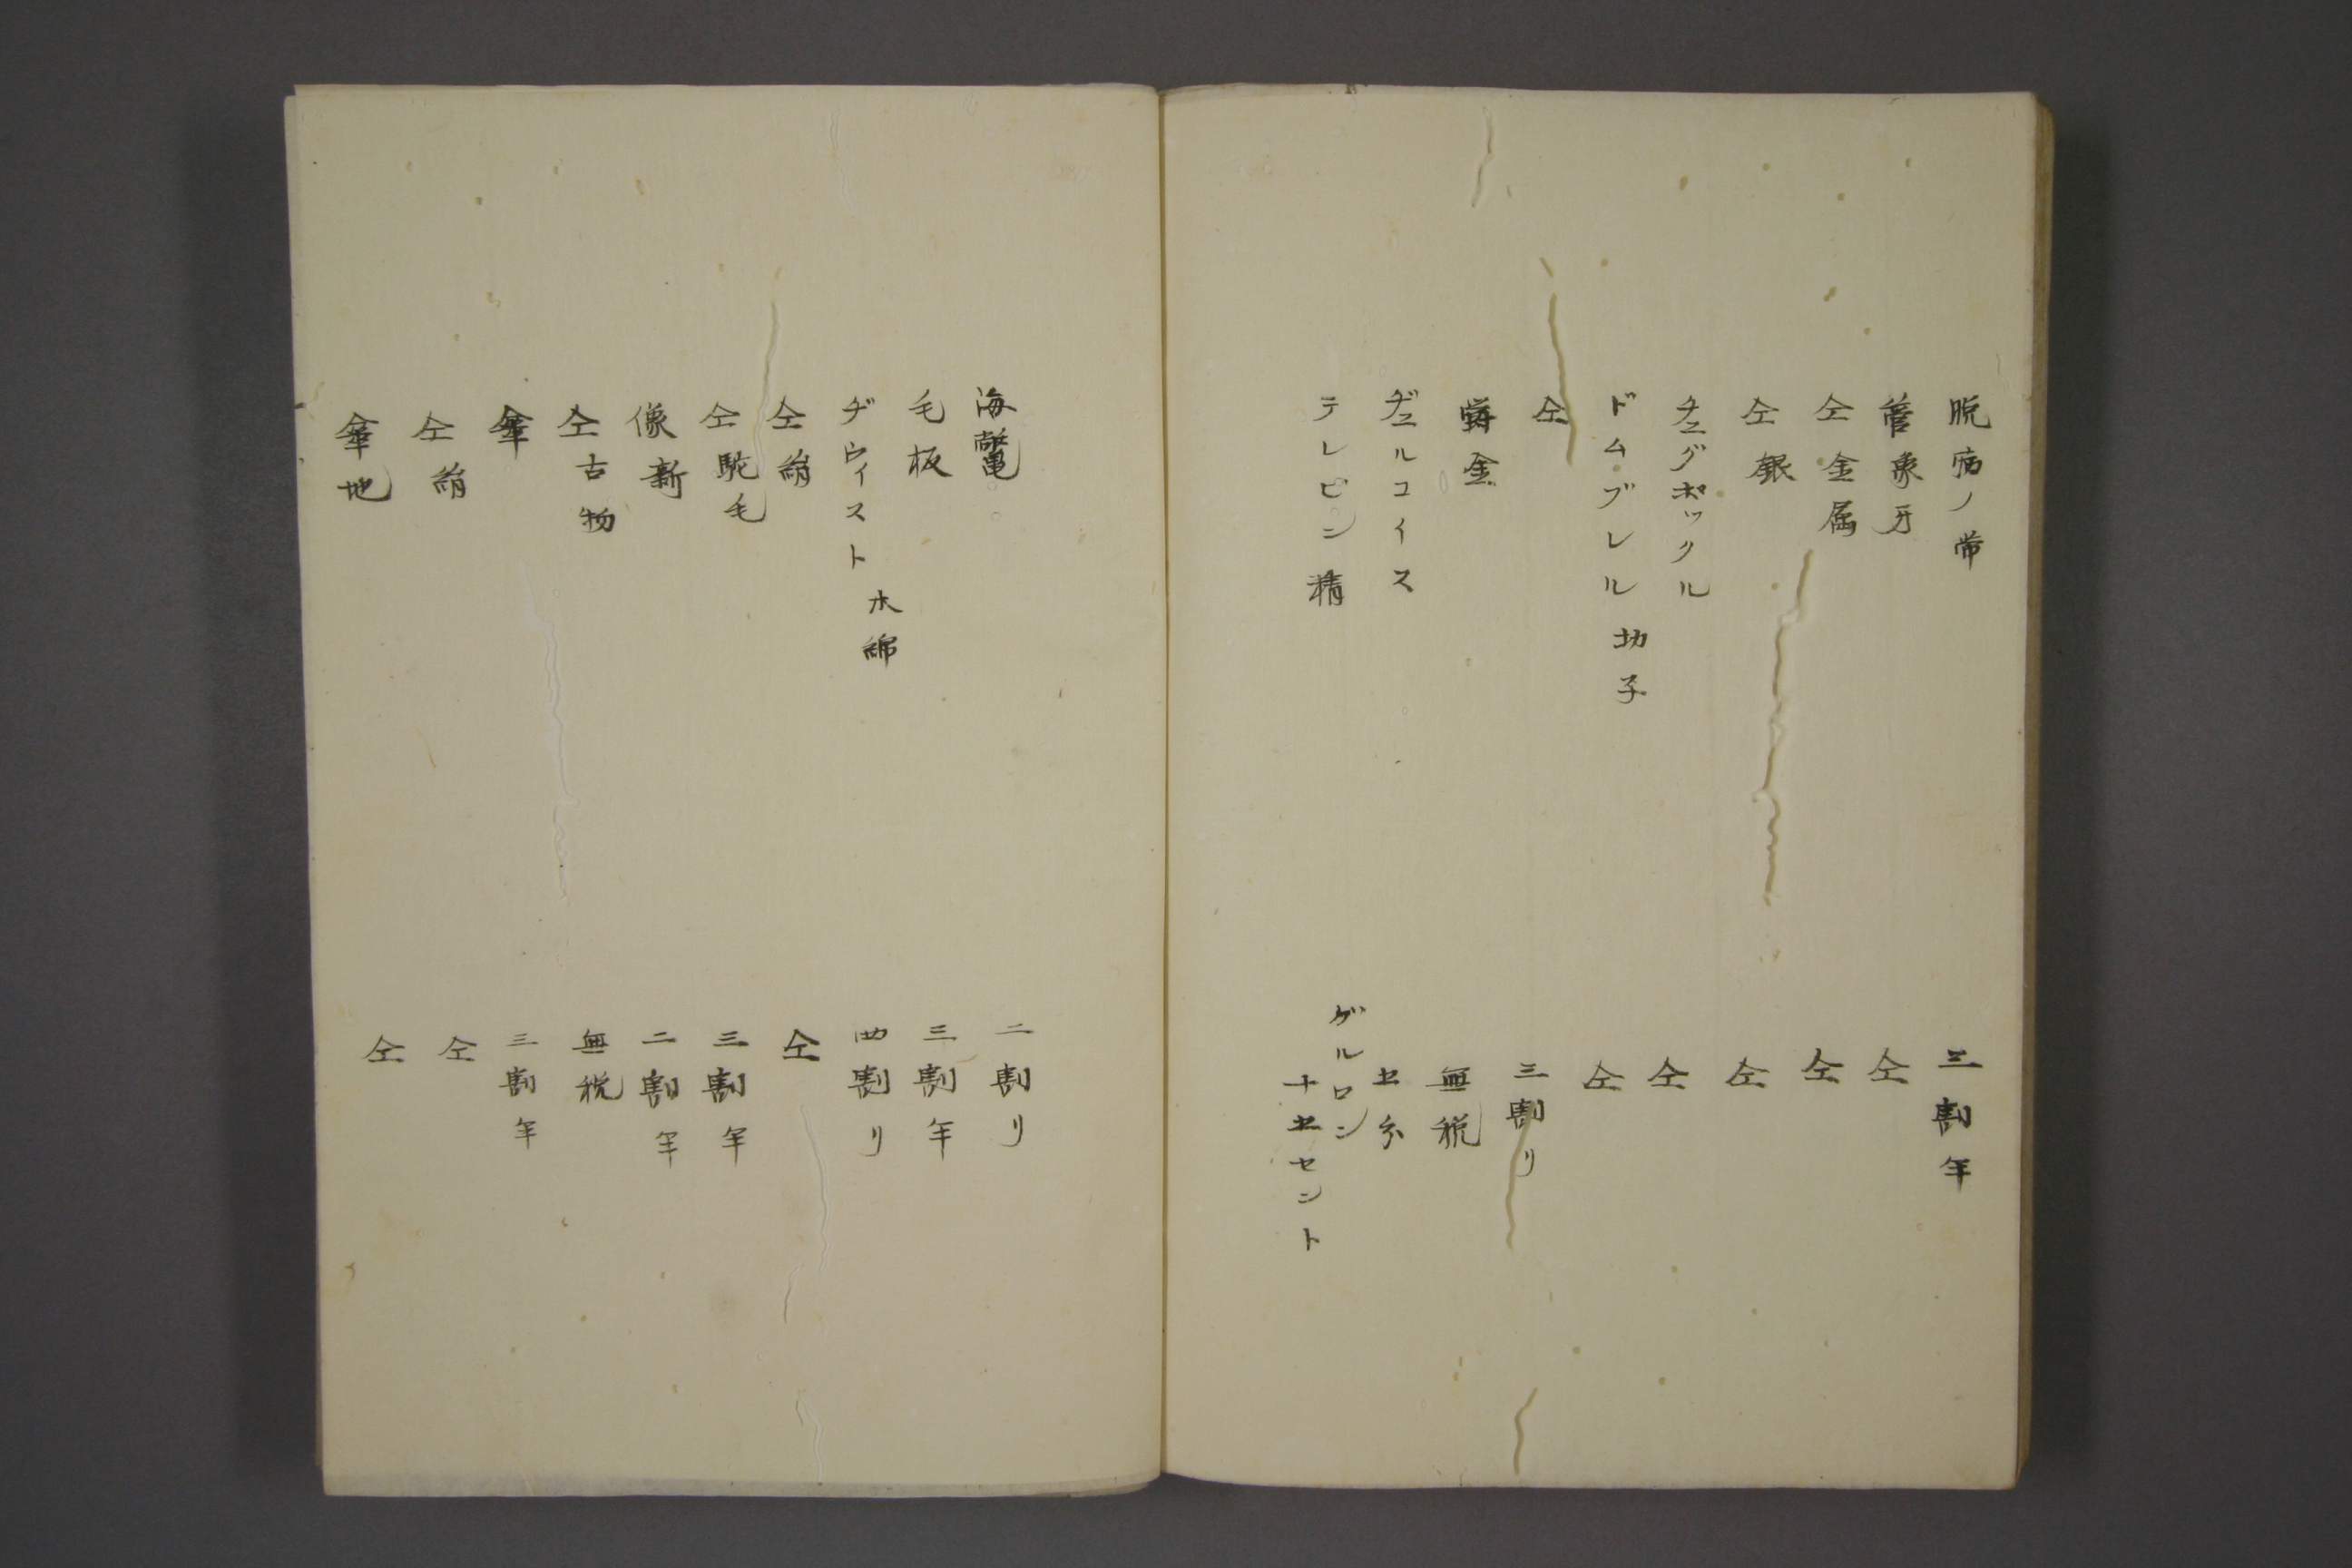 脱病ノ帯 三割半
管象牙 仝
仝金属 仝
仝銀 仝
チユグポックル 仝
ドムブレル 坊子 仝
仝 三割リ
金 無税
ヂユルコイス 七分
テレピン精 ゲルロン 十七セント
海鼈 二割リ
毛板 三割半
ヂウイスト 木綿 四割リ
仝絹 仝
仝駝毛 三割半
像新 二割半
仝古物 無税
傘 三割半
仝絹 仝
傘地 仝